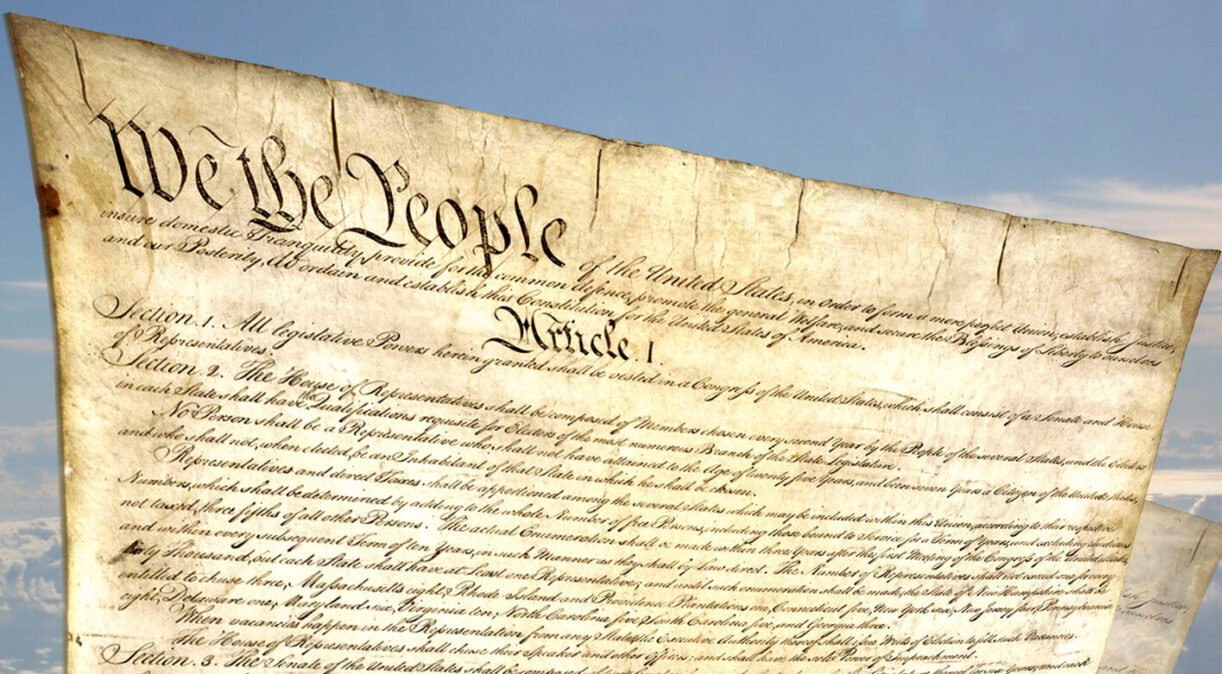 We the People of the United States, in Order to form a more perfect Union, establish Justice,
insure domestic Tranquility, provide for the common defence, promote the general Welfare, and secure the Blessings of Liberty to ourselves
and our Posterity, do ordain and establish this Constitution for the United States of America.
Article. I.
Section. 1. All legislative Powers herein granted shall be vested in a Congress of the United States, which shall consist of a Senate and House
of Representatives.
Section. 2. The House of Representatives shall be composed of Members chosen every second Year by the People of the several States, and the Electors
in each State shall have the Qualifications requisite for Electors of the most numerous Branch of the State Legislature.
No Person shall be a Representative who shall not have attained to the Age of twenty five Years, and been seven Years a Citizen of the United States,
and who shall not, when elected, be an Inhabitant of that State in which he shall be chosen.
Representatives and direct Taxes shall be apportioned among the several States which may be included within this Union, according to their respective
Numbers, which shall be determined by adding to the whole Number of free Persons, including those bound to Service for a Term of Years, and excluding Indians
not taxed, three fifths of all other Persons. The actual Enumeration shall be made within three Years after the first Meeting of the Congress of the United States,
and within every subsequent Term of ten Years, in such Manner as they shall by Law direct. The Number of Representatives shall not exceed one for every
thirty Thousand, but each State shall have at Least one Representative; and until such enumeration shall be made, the State of New Hampshire shall be
entitled to chuse three, Massachusetts eight, Rhode Island and Providence Plantations one, Connecticut five, New York six, New Jersey four, Pennsylvania
eight, Delaware one, Maryland six, Virginia ten, North Carolina five, South Carolina five, and Georgia three.
When vacancies happen in the Representation from any State, the Executive Authority thereof shall issue Writs of Election to fill such Vacancies.
The House of Representatives shall chuse their Speaker and other Officers; and shall have the sole Power of Impeachment.
Section. 3. The Senate of the United States shall be composed of